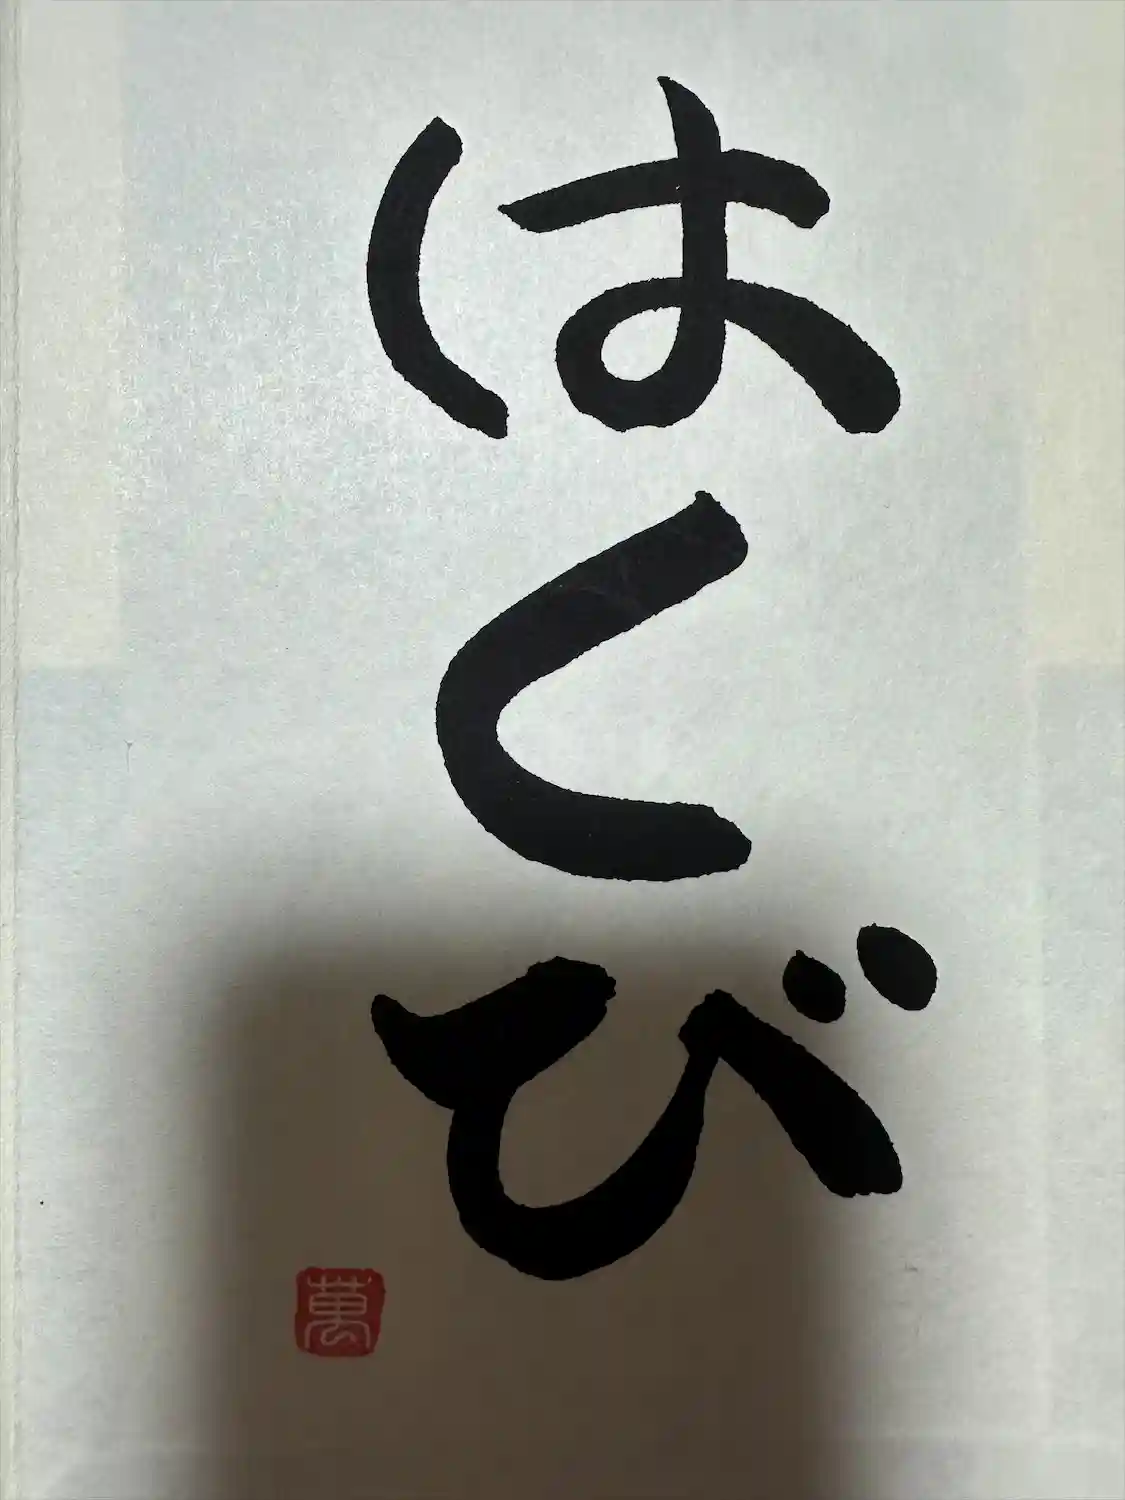 はくび
萬